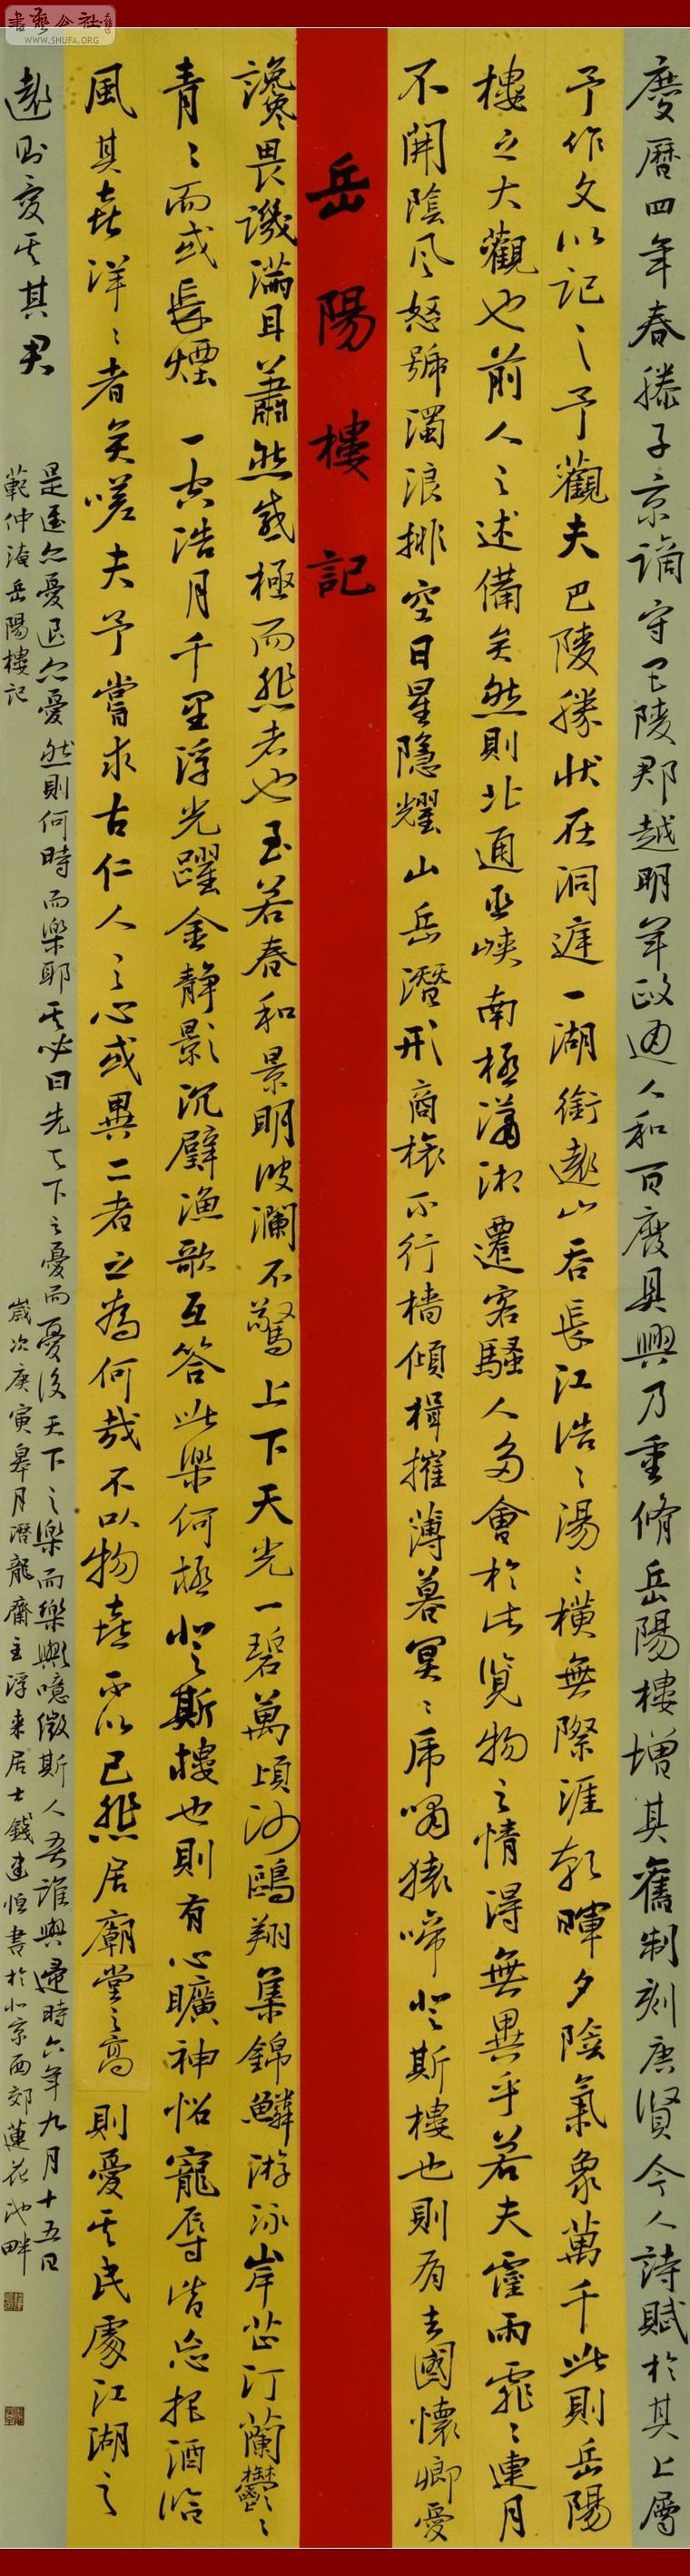 書藝公社
WWW.SHUFA.ORG
慶曆四年春滕子京謫守巴陵郡越明年政通人和百廢具興乃重脩岳陽樓增其舊制刻唐賢今人詩賦於其上屬
予作文以記之予觀夫巴陵勝狀在洞庭一湖銜遠山吞長江浩〻湯〻橫無際涯朝暉夕陰氣象萬千此則岳陽
樓之大觀也前人之述備矣然則北通巫峽南極瀟湘遷客騷人多會於此覽物之情得無異乎若夫霪雨霏〻連月
不開陰風怒號濁浪排空日星隱耀山岳潛形商旅不行檣傾楫摧薄暮冥〻虎嘯猿啼登斯樓也則有去國懷鄉憂
岳陽樓記
讒畏譏滿目蕭然感極而悲者也至若春和景明波瀾不驚上下天光一碧萬頃沙鷗翔集錦鱗游泳岸芷汀蘭鬱〻
青〻而或長煙一空浩月千里浮光躍金靜影沉璧漁歌互答此樂何極登斯樓也則有心曠神怡寵辱皆忘把酒臨
風其喜洋〻者矣嗟夫予嘗求古仁人之心或異二者之為何哉不以物喜不以己悲居廟堂之高則憂其民處江湖之
遠則憂其君
是進亦憂退亦憂然則何時而樂耶其必曰先天下之憂而憂後天下之樂而樂歟噫微斯人吾誰與歸時六年九月十五日
範仲淹岳陽樓記
歲次庚寅皋月潛龍齋主浮來居士錢建恒書於北京西郊蓮花池畔